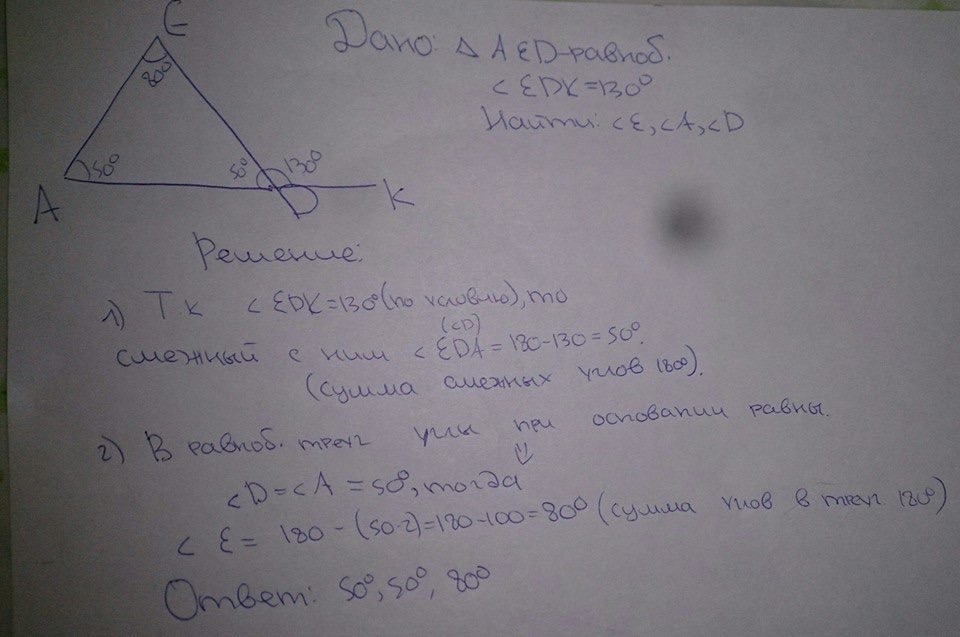 E
80°
50°
50°
130°
A
D
K
Дано: Δ AED-равноб.
< EDK=130°
Найти: <E, <A, <D
Решение:
1) Тк < EDK=130° (по условию), то
(<D)
смежный с ним < EDA = 180-130 = 50°.
(сумма смежных углов 180°).
2) В равноб. треуг углы при основании равны.
⇓
<D=<A = 50°, тогда
< E = 180 - (50·2)=180-100=80° (сумма углов в треуг 180°)
Ответ: 50°, 50°, 80°